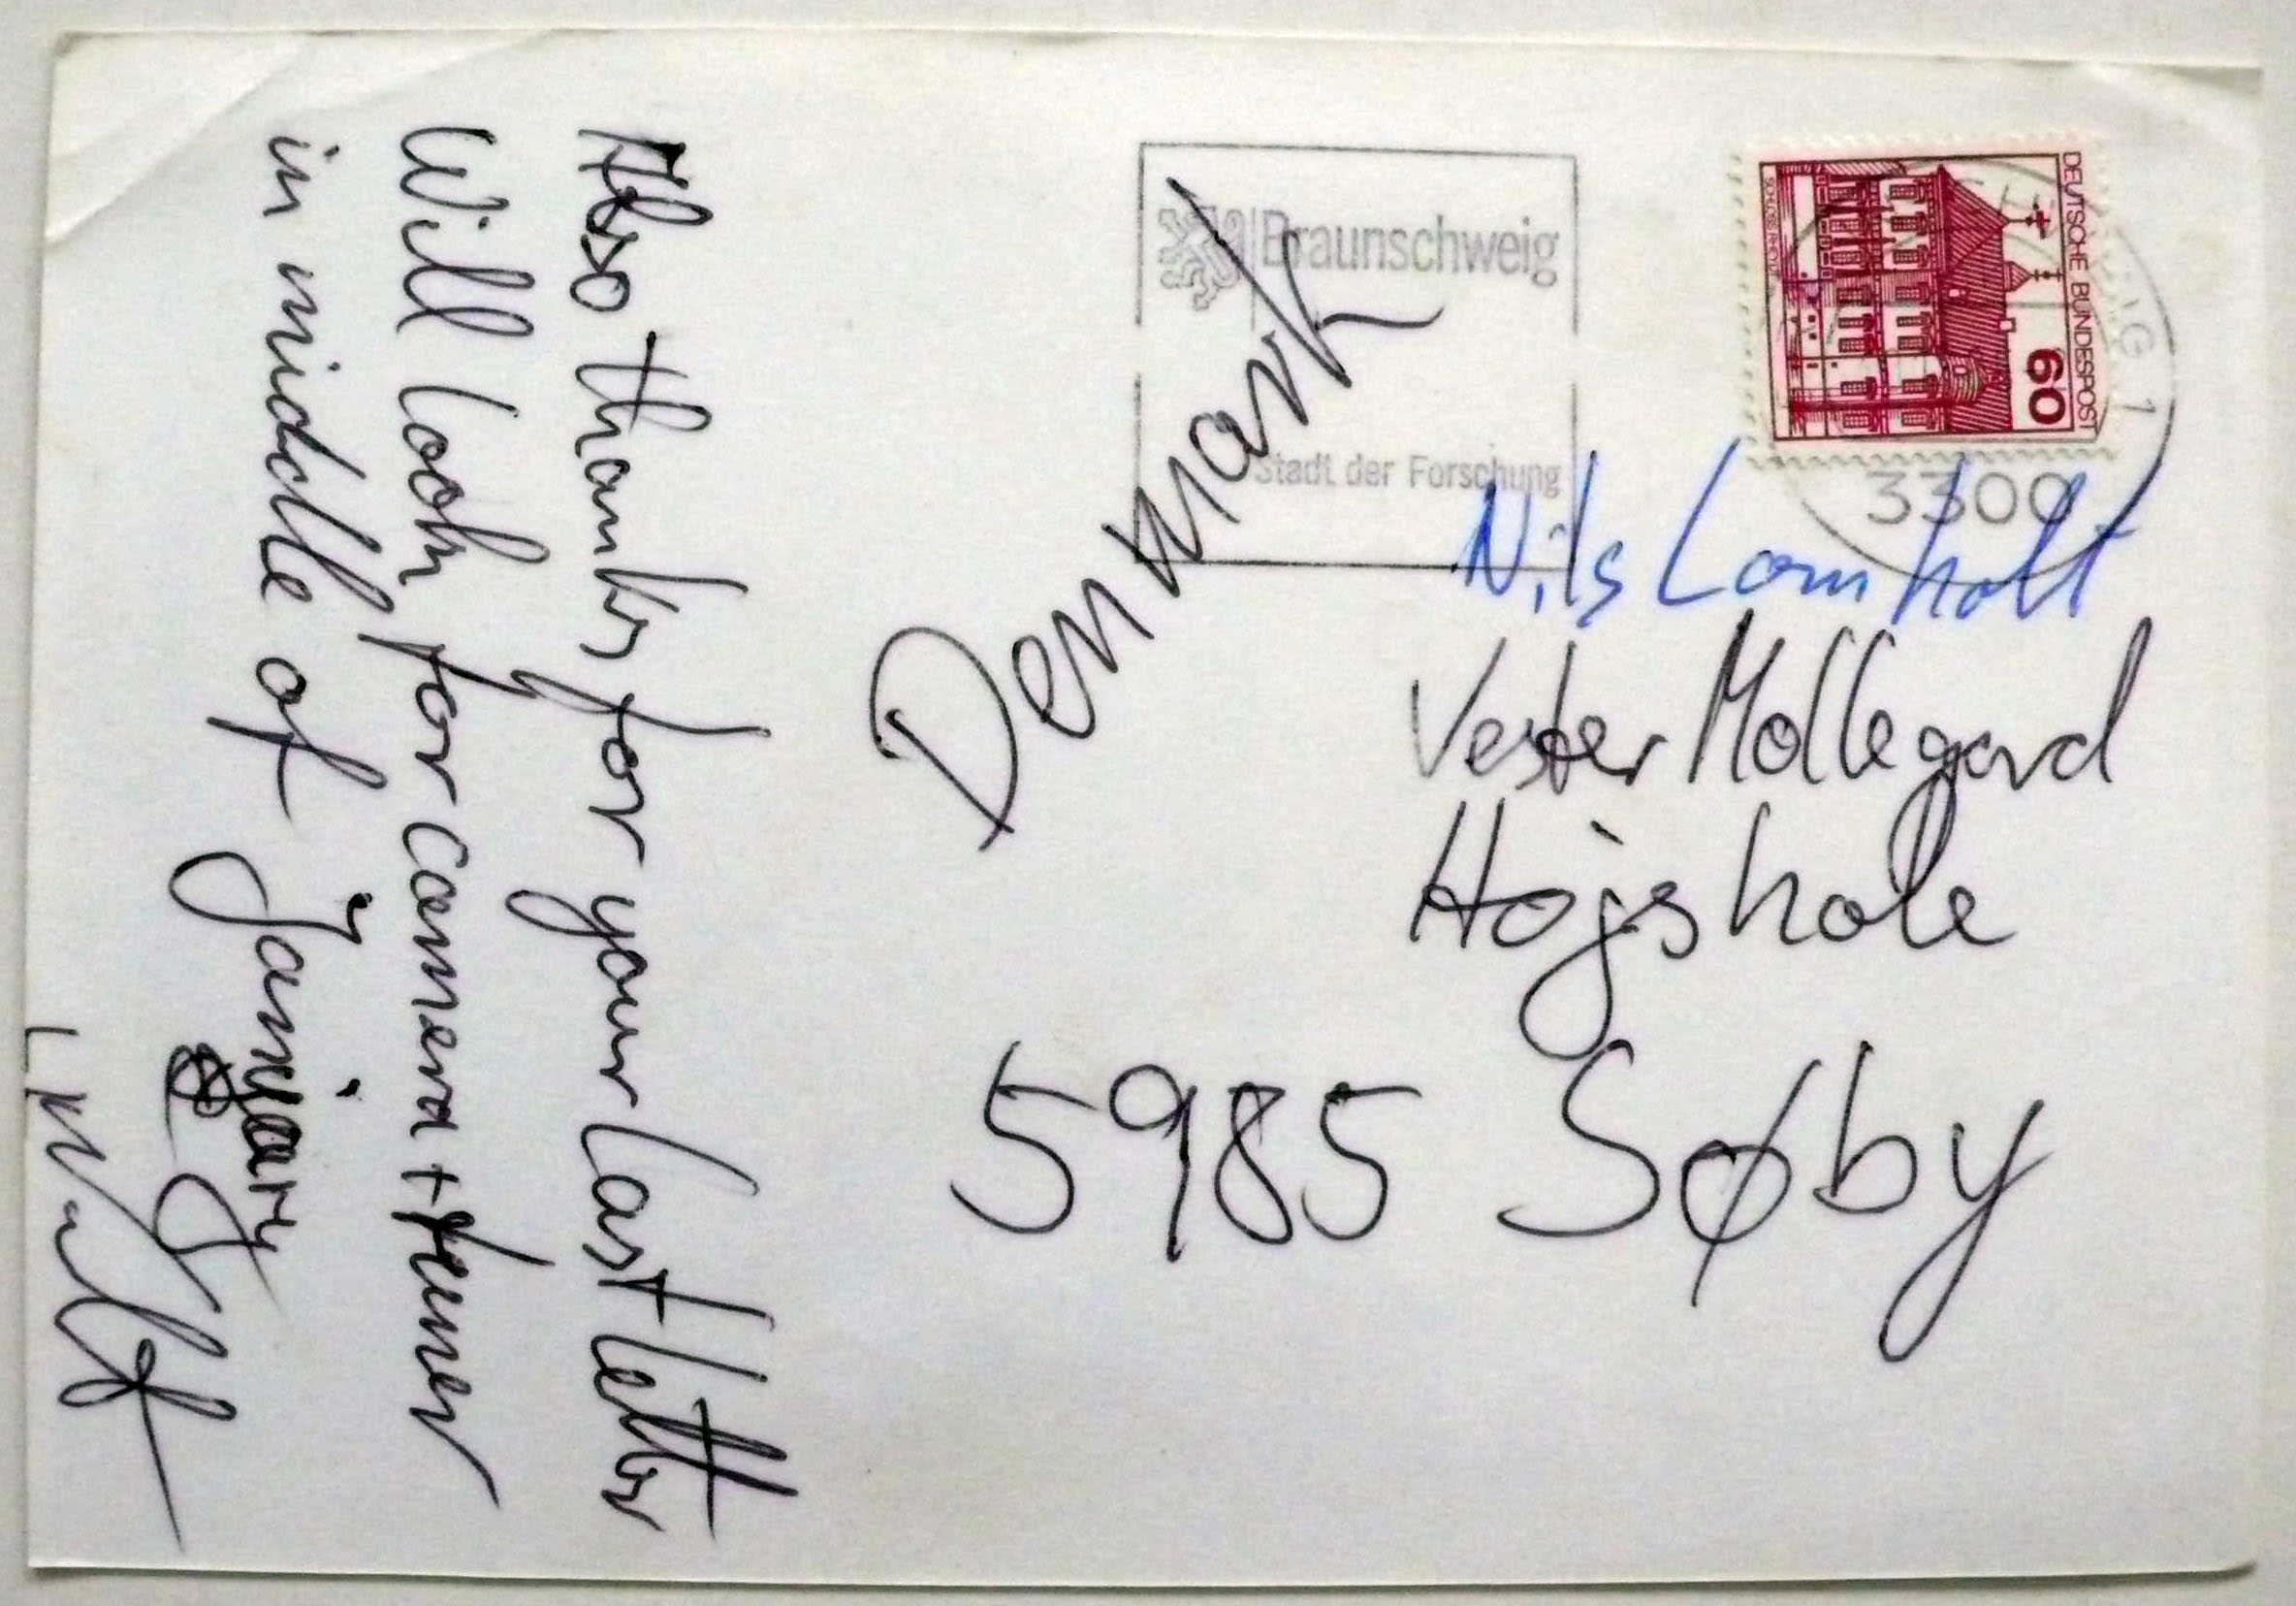 Also thanks for your last letter
Will look for camera + tuner
in middle of January
Braunschweig
Stadt der Forschung
DEUTSCHE BUNDESPOST
60
3300
Denmark
Nils Lomholt
Vester Mollegard
Højshole
5985 Søby